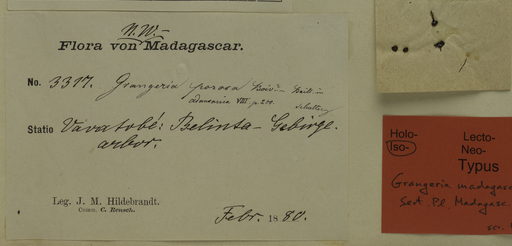 N.W.-
Flora von Madagascar.
No. 3317. Grangeria porosa Boiv. Baill. in
Adansonia VIII p. 200.
Statio Vavatobé: Belinta-Gebirge.
arbor.
Leg. J. M. Hildebrandt.
Comm. C. Rensch.
Febr. 1880.
Holo- Lecto-
Iso- Neo-
Typus
Grangeria madagasc
Sect. Pl. Madagasc